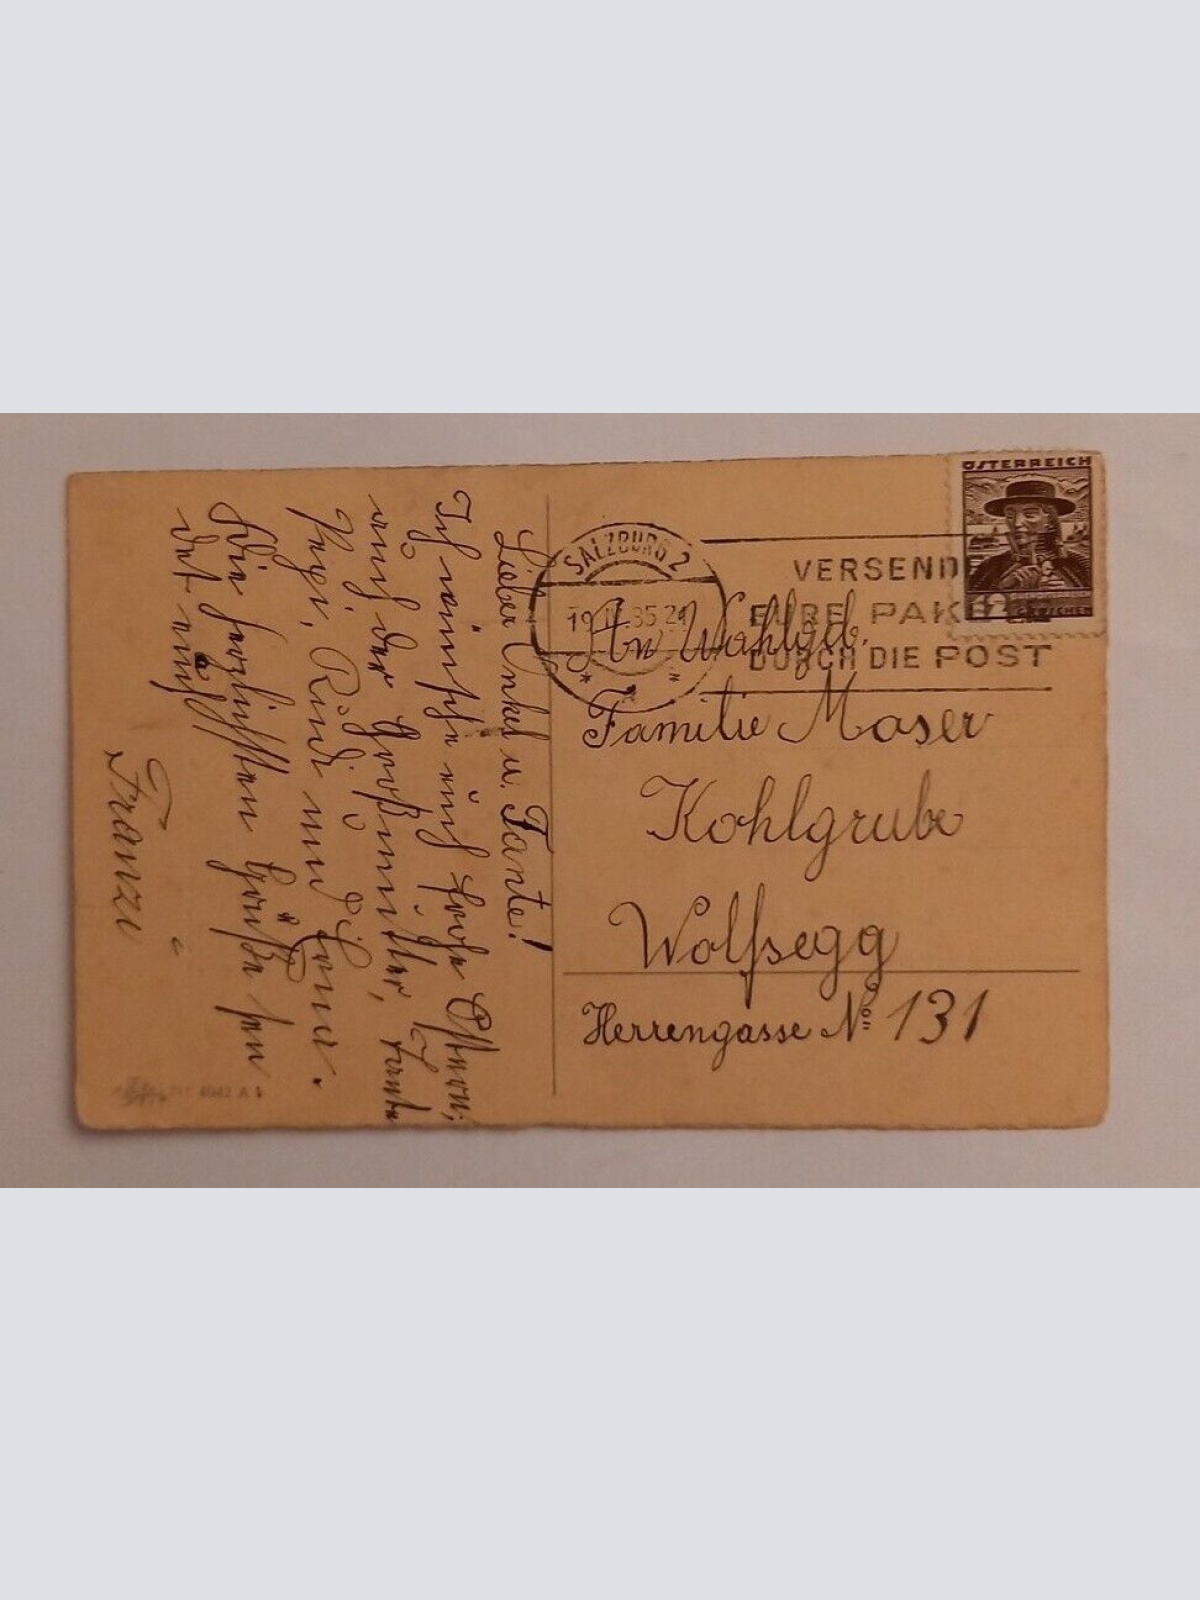 Lieber Onkel u. Tante!
Ich wünsche euch frohe Ostern,
auch der Großmutter, Tante
Resi, Rudi und
Die herzlichsten Grüße sen
det euch
Franzi
4042 A
SALZBURG 2
19. IV. 35 21
VERSENDE
EURE PAKETE
DURCH DIE POST
ÖSTERREICH
12
GROSCHEN
An Wohlgeb.
Familie Moser
Kohlgrube
Wolfsegg
Herrengasse No 131